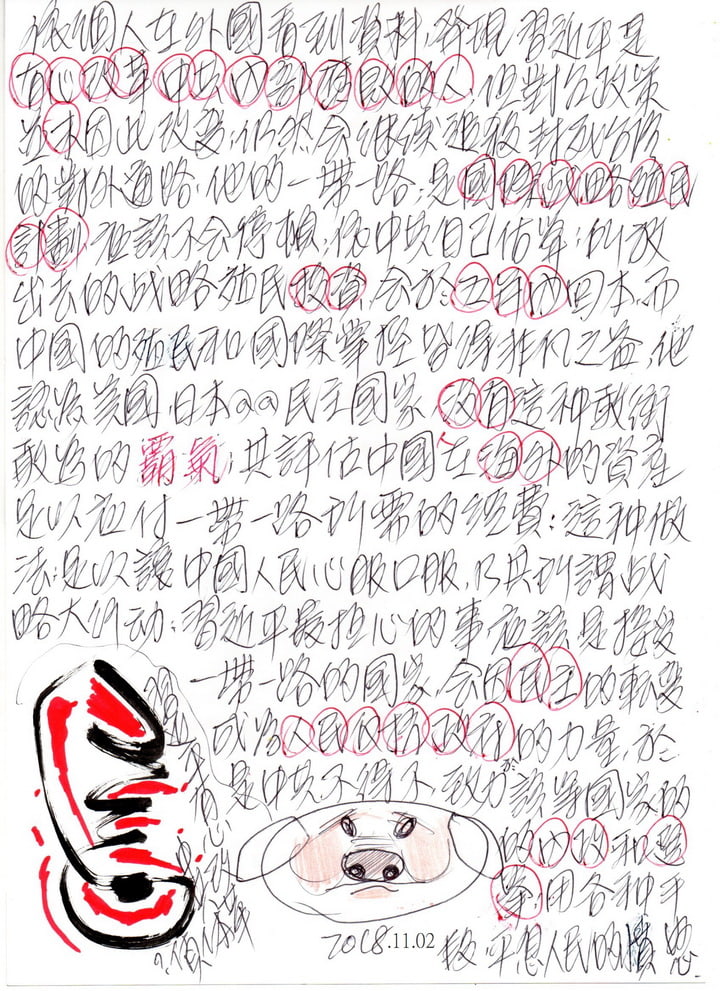 個人在外國看到資料,發現習近平是
有心改革中共內部腐敗的人,但對台政策
並未因此改變,仍然会继续強殺封死台湾
的對外通路,他的一帶一路,是國際战略殖民
計劃,應該不会停頓,依中共自己估算,所放
出去的战略殖民投資,会於五年內回本,而
中國的殖民和國際掌控皆得非凡之益,他
認為美國,日本@@民主國家 沒有這种敢衝
敢為的霸氣,其評估中國在海外的資產
足以應付一帶一路所需的經費;這种做
法,足以讓中國人民心服口服,乃其所謂战
略大行动;習近平最担心的事應該是接受
一帶一路的國家,会因民主的轉變
成為人民反抗政府的力量,於
是中共不得不致力於該等國家的
的內政和選
舉,用各种手
段平息人民的憤怒
習近平有心
改革
2018.11.02